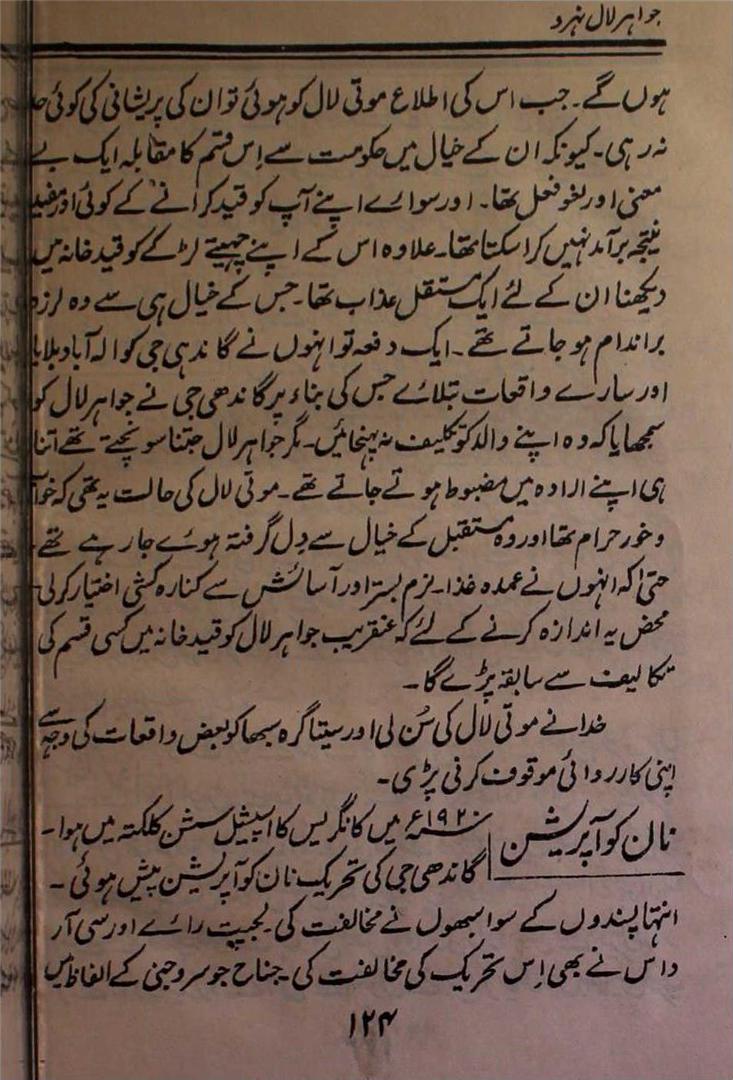 جواہر لال نہرو
ہوں گے۔ جب اس کی اطلاع موتی لال کو ہوئی تو ان کی پریشانی کی کوئی
نہ رہی۔ کیونکہ ان کے خیال میں حکومت سے اِس قسم کا مقابلہ ایک بے
معنی اور لغو فعل تھا۔ اور سوائے اپنے آپ کو قید کرانے کے کوئی اور مفید
نتیجہ برآمد نہیں کرا سکتا تھا۔ علاوہ اس کے اپنے چہیتے لڑکے کو قید خانہ میں
دیکھنا ان کے لئے ایک مستقل عذاب تھا۔ جس کے خیال ہی سے وہ لرزہ
براندام ہو جاتے تھے۔ ایک دفعہ تو انہوں نے گاندہی جی کو الہ آباد بلایا
اور سارے واقعات بتلائے جس کی بناء پر گاندھی جی نے جواہر لال کو
سمجھایا کہ وہ اپنے والد کو تکلیف نہ پہنچائیں۔ مگر جواہر لال جتنا سونچتے تھے اتنا
ہی اپنے ارادہ میں مضبوط ہوتے جاتے تھے۔ موتی لال کی حالت یہ تھی کہ خواب
و خور حرام تھا اور وہ مستقبل کے خیال سے دِل گرفتہ ہوئے جا رہے تھے
حتیٰ کہ انہوں نے عمدہ غذا۔ نرم بستر اور آسائش سے کنارہ کشی اختیار کر لی
محض یہ اندازہ کرنے کے لئے کہ عنقریب جواہر لال کو قید خانہ میں کسی قسم کی
تکالیف سے سابقہ پڑے گا۔
خدا نے موتی لال کی سُن لی اور ستیا گرہ سبھا کو بعض واقعات کی وجہ سے
اپنی کارروائی موقوف کرنی پڑی۔
نان کوآپریشن
۱۹۲۰ء میں کانگریس کا اسپیشل سشن کلکتہ میں ہوا۔
گاندھی جی کی تحریک نان کوآپریشن پیش ہوئی۔
انتہا پسندوں کے سوا سبھوں نے مخالفت کی۔ لجپت رائے اور سی آر
داس نے بھی اِس تحریک کی مخالفت کی۔ جناح جو سروجنی کے الفاظ میں
۱۲۴